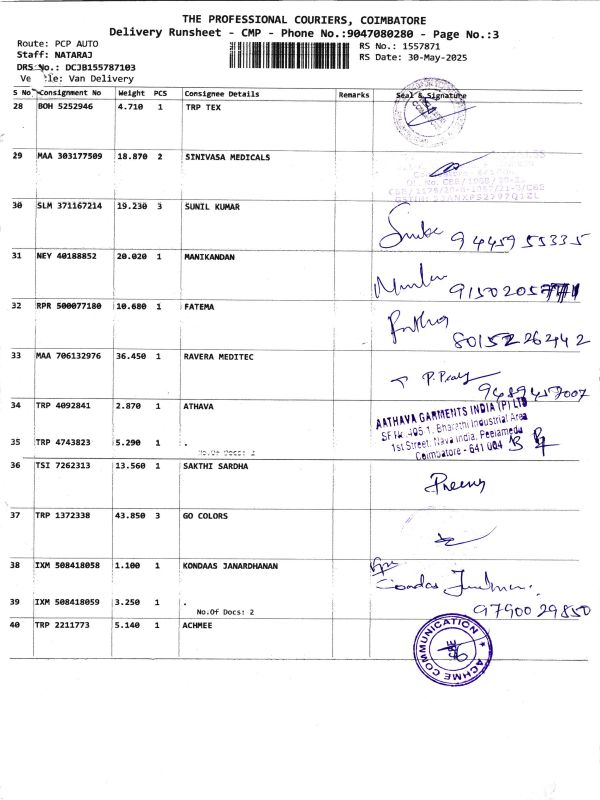 THE PROFESSIONAL COURIERS, COIMBATORE
Delivery Runsheet - CMP - Phone No.:9047080280 - Page No.:3
Route: PCP AUTO
RS No.: 1557871
Staff: NATARAJ
RS Date: 30-May-2025
DRS No.: DCJB155787103
Van Delivery
S No Consignment No Weight PCS Consignee Details Remarks Seal & Signature
28 BOH 5252946 4.710 1 TRP TEX
29 MAA 303177509 18.870 2 SINIVASA MEDICALS
30 SLM 371167214 19.230 3 SUNIL KUMAR
9445955335
31 NEY 40188852 20.020 1 MANIKANDAN
32 RPR 500077180 10.680 1 FATEMA
33 MAA 706132976 36.450 1 RAVERA MEDITEC
9489457007
34 TRP 4092841 2.870 1 ATHAVA
AATHAVA GARMENTS INDIA (P) LTD
SF No. 405 1, Bharathi Industrial Area
1st Street, Nava India, Peelamedu
Coimbatore - 641 004
35 TRP 4743823 5.290 1 .
No.Of Docs: 2
36 TSI 7262313 13.560 1 SAKTHI SARDHA
37 TRP 1372338 43.850 3 GO COLORS
38 IXM 508418058 1.100 1 KONDAAS JANARDHANAN
39 IXM 508418059 3.250 1 .
No.Of Docs: 2
9790029850
40 TRP 2211773 5.140 1 ACHMEE
ACHME COMMUNICATION